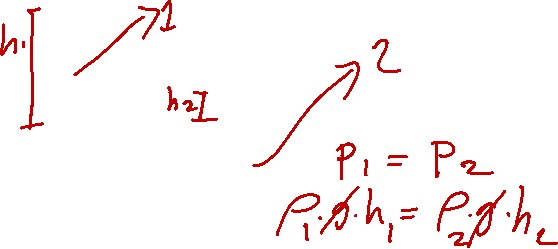 h₁ 1
h₂ 2
P₁ = P₂
ρ₁·g·h₁ = ρ₂·g·h₂